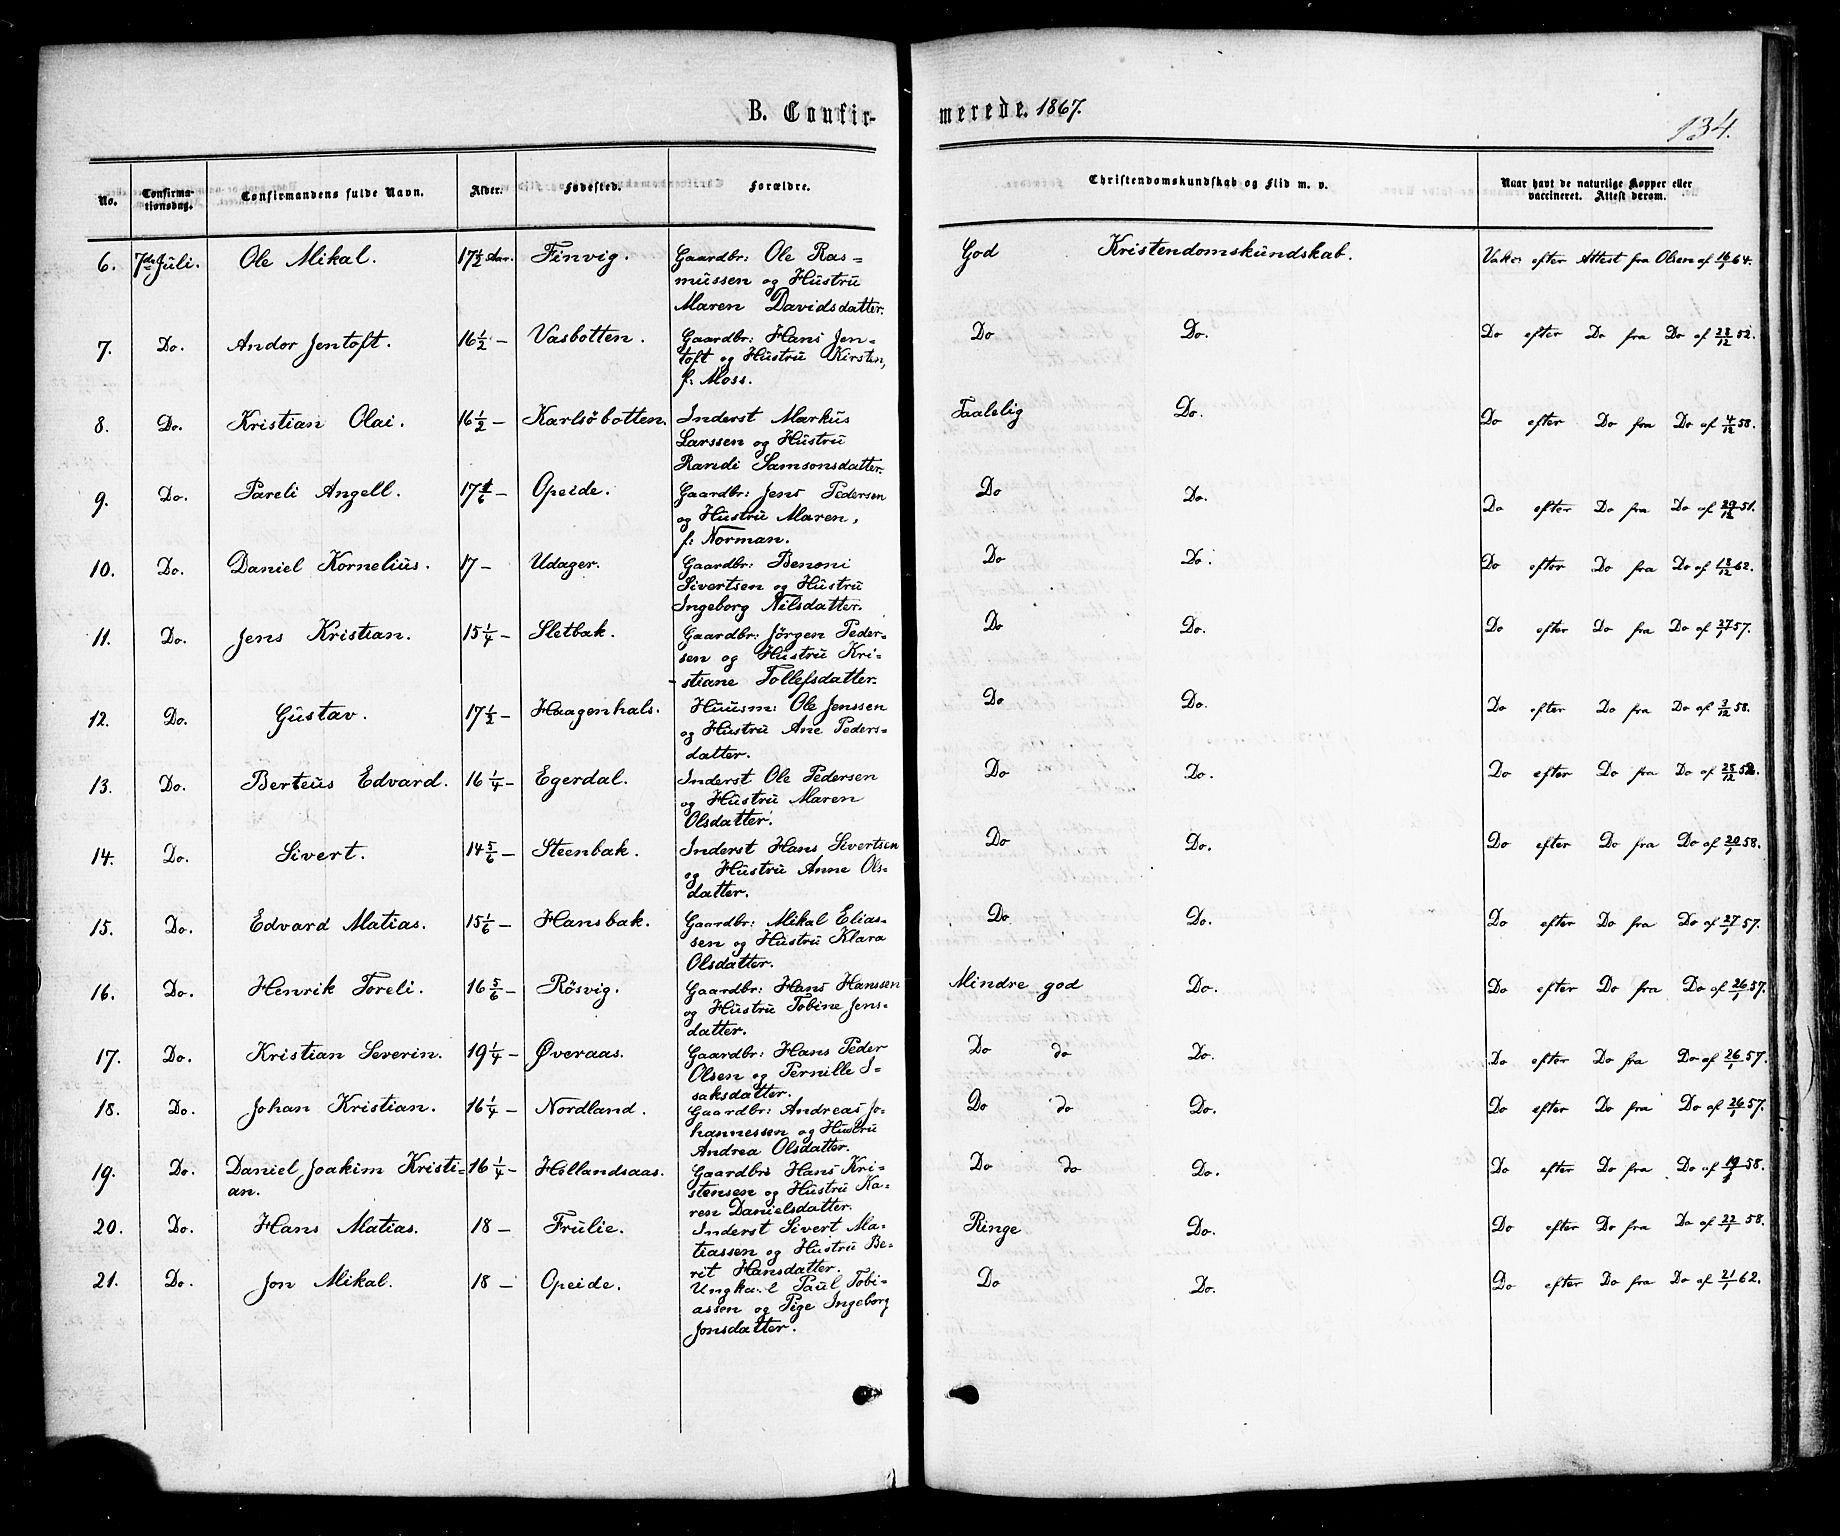 B. Confirmerede. 1867.
134.
No. Confirmationsdag. Confirmandens fulde Navn. Alder. Fødested. Forældre. Christendomskundskab og Flid m. v. Naar havt de naturlige Kopper eller vaccineret. Attest derom.
6. 7de Juli. Ole Mikal. 17 1/2 Aar. Finvig. Gaardbr: Ole Ras= God Kristendomskundskab. Vakc: efter Attest fra Olsen af 16/1 64.
müssen og Hüstrü
Maren Davidsdatter.
7. Do. Andor Jentoft. 16 1/2 — Vasbotten. Gaardbr: Hans Jen= Do Do. Do efter Do fra Do af 28/12 52.
toft og Hüstrü Kirsten,
f: Moss.
8. Do. Kristian Olai. 16 1/2 — Karlsöbotten. Inderst Marküs Taalelig Do. Do efter Do fra Do af 4/12 58.
Larssen og Hüstrü
Randi Samsonsdatter.
9. Do. Pareli Angell. 17 1/6 — Opeide. Gaardbr: Jens Pedersen Do Do. Do efter Do fra Do af 29/12 51.
og Hüstrü Maren,
f: Norman.
10. Do. Daniel Kornelius. 17 — Udager. Gaardbr: Benoni Do Do. Do efter Do fra Do af 18/12 62.
Sivertsen og Hüstrü
Ingeborg Nilsdatter.
11. Do. Jens Kristian. 15 1/4 — Sletbak. Gaardbr: Jörgen Peder= Do Do. Do efter Do fra Do af 27/1 57.
sen og Hüstrü Kri=
stiane Tollefsdatter.
12. Do. Güstav. 17 1/2 — Haagenhals. Huusm: Ole Jenssen Do Do. Do efter Do fra Do af 3/12 58.
og Hüstrü Ane Peders=
datter.
13. Do. Berteüs Edvard. 16 1/4 — Egerdal. Inderst Ole Pedersen Do Do. Do efter Do fra Do af 28/12 52.
og Hüstrü Maren
Olsdatter.
14. Do. Sivert. 14 5/6 — Steenbak. Inderst Hans Sivertsen Do Do. Do efter Do fra Do af 20/1 58.
og Hüstrü Anne Ols=
datter.
15. Do. Edvard Matias. 15 1/6 — Hansbak. Gaardbr: Mikal Elias= Do Do. Do efter Do fra Do af 27/1 57.
sen og Hüstrü Klara
Olsdatter.
16. Do. Henrik Toreli. 16 5/6 — Rösvig. Gaardbr: Hans Hanssen Mindre god Do. Do efter Do fra Do af 26/1 57.
og Hüstrü Tobine Jens=
datter.
17. Do. Kristian Severin. 19 1/4 — Øveraas. Gaardbr: Hans Peder Do do Do. Do efter Do fra Do af 26/1 57.
Olsen og Pernille I=
saksdatter.
18. Do. Johan Kristian. 16 1/4 — Nordland. Gaardbr: Andreas Jo= Do do Do. Do efter Do fra Do af 26/1 57.
hannessen og Hustru
Andrea Olsdatter.
19. Do. Daniel Joakim Kristi= 16 1/4 — Hollandsaas. Gaardbr: Hans Kri= Do do Do. Do efter Do fra Do af 19/1 58.
an. stensen og Hüstrü Ka=
ren Danielsdatter.
20. Do. Hans Matias. 18 — Frülie. Inderst Sivert Ma= Ringe Do. Do efter Do fra Do af 22/1 58.
tiassen og Hüstrü Be=
rit Hansdatter.
21. Do. Jon Mikal. 18 — Opeide. Ungkarl Paul Tobi= Do Do. Do efter Do fra Do af 21/1 62.
assen og Pige Ingeborg
Jonsdatter.